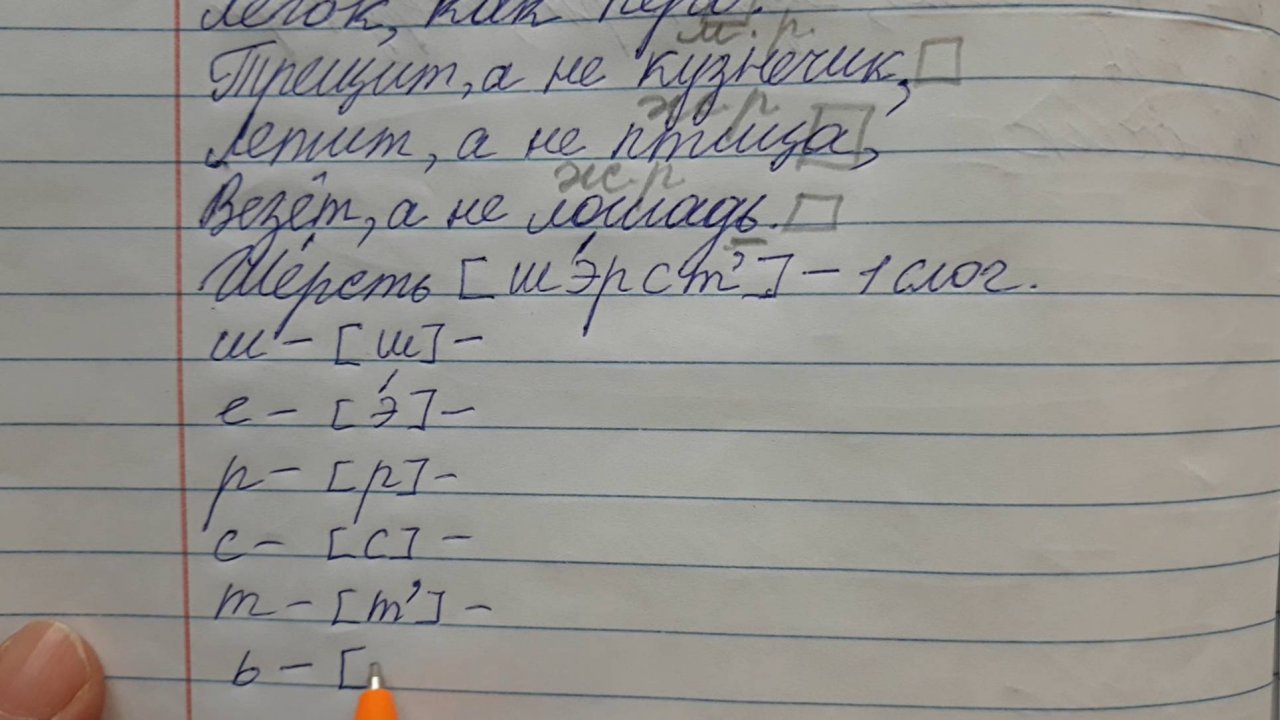 легок, как перо.
м.р.
Трещит, а не кузнечик,
ж.р
Летит, а не птица,
ж.р.
Везёт, а не лошадь.
Шерсть [шэ́рст’] – 1 слог.
ш – [ш] –
е – [э́] –
р – [р] –
с – [с] –
т – [т’] –
ь – [